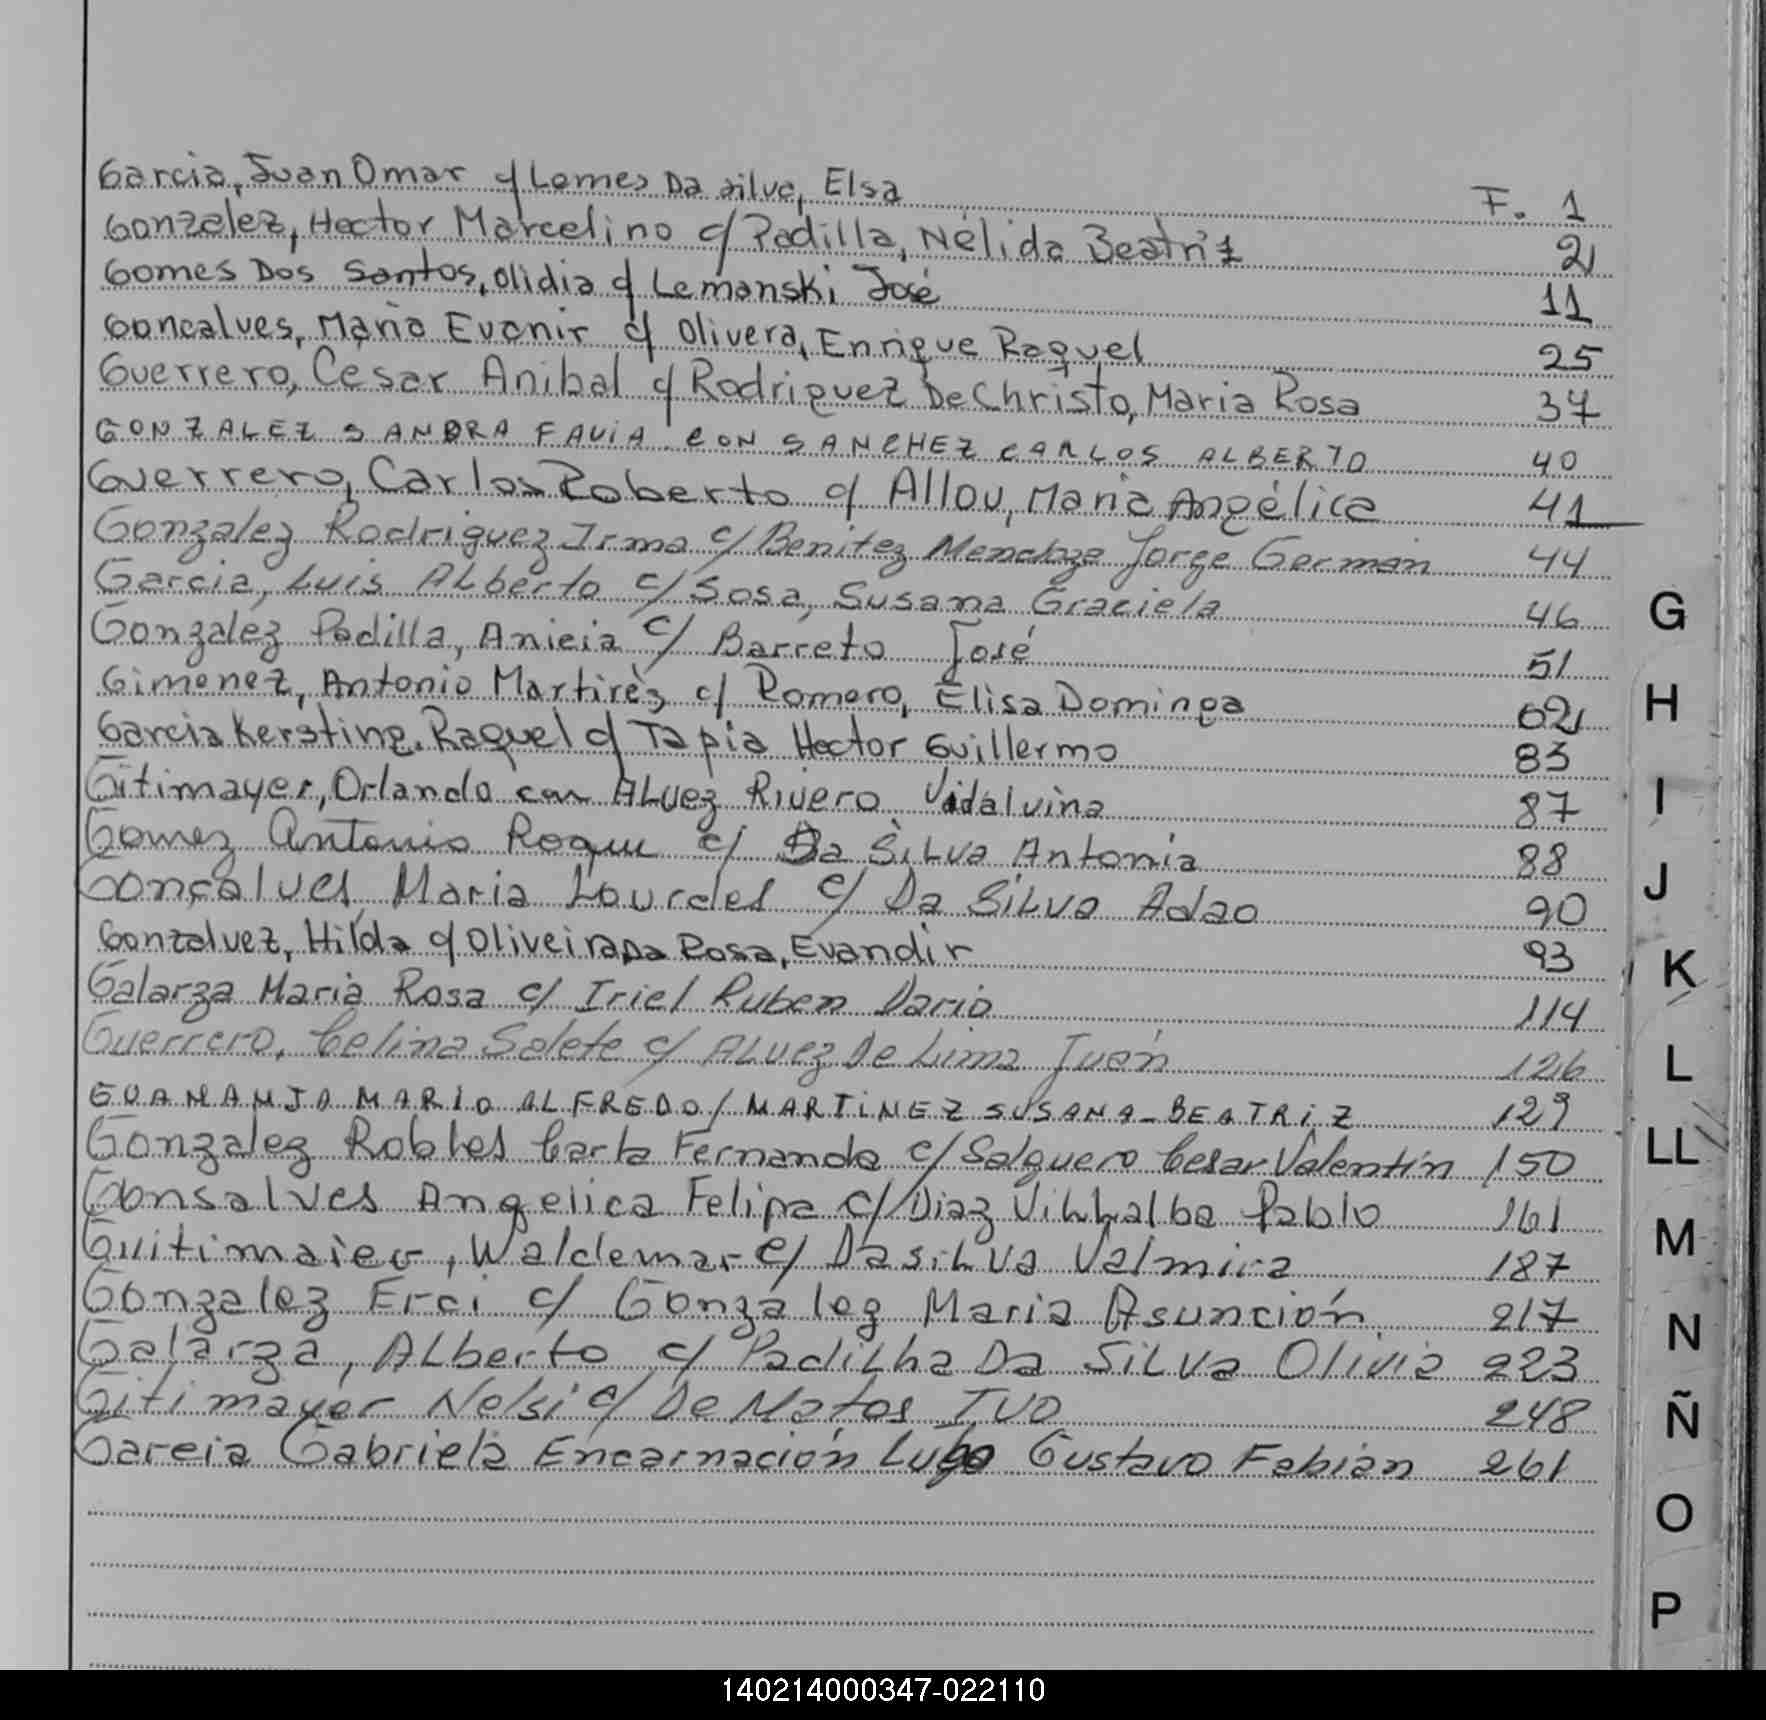 Garcia, Juan Omar c/ Lemes Da Silva, Elsa F. 1
Gonzalez, Hector Marcelino c/ Padilla, Nélida Beatriz 2
Gomes Dos Santos, Olidia c/ Lemanski José 11
Goncalves, Maria Evanir c/ Olivera, Enrique Raquel 25
Guerrero, Cesar Anibal c/ Rodriguez De Christo, Maria Rosa 37
GONZALEZ SANDRA FAVIA CON SANCHEZ CARLOS ALBERTO 40
Guerrero, Carlos Roberto c/ Allou, Maria Angélica 41
Gonzalez Rodriguez Irma c/ Benitez Mendoza Jorge German 44
Garcia, Luis Alberto c/ Sosa, Susana Graciela 46
Gonzalez Padilla, Anieia c/ Barreto José 51
Gimenez, Antonio Martirés c/ Romero, Elisa Dominga 62
Garcia Kersting, Raquel c/ Tapia Hector Guillermo 83
Gitimayer, Orlando con Alvez Rivero Vidalvina 87
Gomez Antonio Roque c/ Da Silva Antonia 88
Gonçalves Maria Lourdes c/ Da Silva Adao 90
Gonzalvez, Hilda c/ Oliveira Da Rosa, Evandir 93
Galarza Maria Rosa c/ Iriel Ruben Dario 114
Guerrero, Celina Salete c/ Alvez De Lima Juan 126
MARIO ALFREDO / MARTiNEZ SUSANA-BEATRiZ 129
Gonzalez Robles Carla Fernanda c/ Salguero Cesar Valentín 150
Gonsalves Angelica Felipa c/ Diaz Villalba Pablo 161
Guitimaier, Waldemar c/ Da Silva Valmira 187
Gonzalez Erci c/ Gonzalez Maria Asunción 217
Galarza, Alberto c/ Padilha Da Silva Olivia 223
Gitimayer Nelsi c/ De Matos Ivo 248
Garcia Gabriela Encarnación Lugo Gustavo Fabian 261
G
H
I
J
K
L
LL
M
N
Ñ
O
P
140214000347-022110